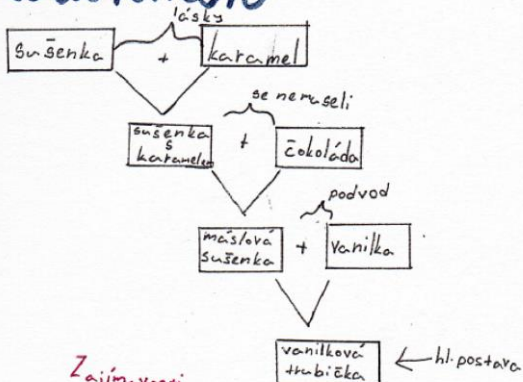 lásky
sušenka + karamel
se nemuseli
sušenka
s
karamelem + čokoláda
podvod
máslová
sušenka + vanilka
vanilková
trubička
hl. postava